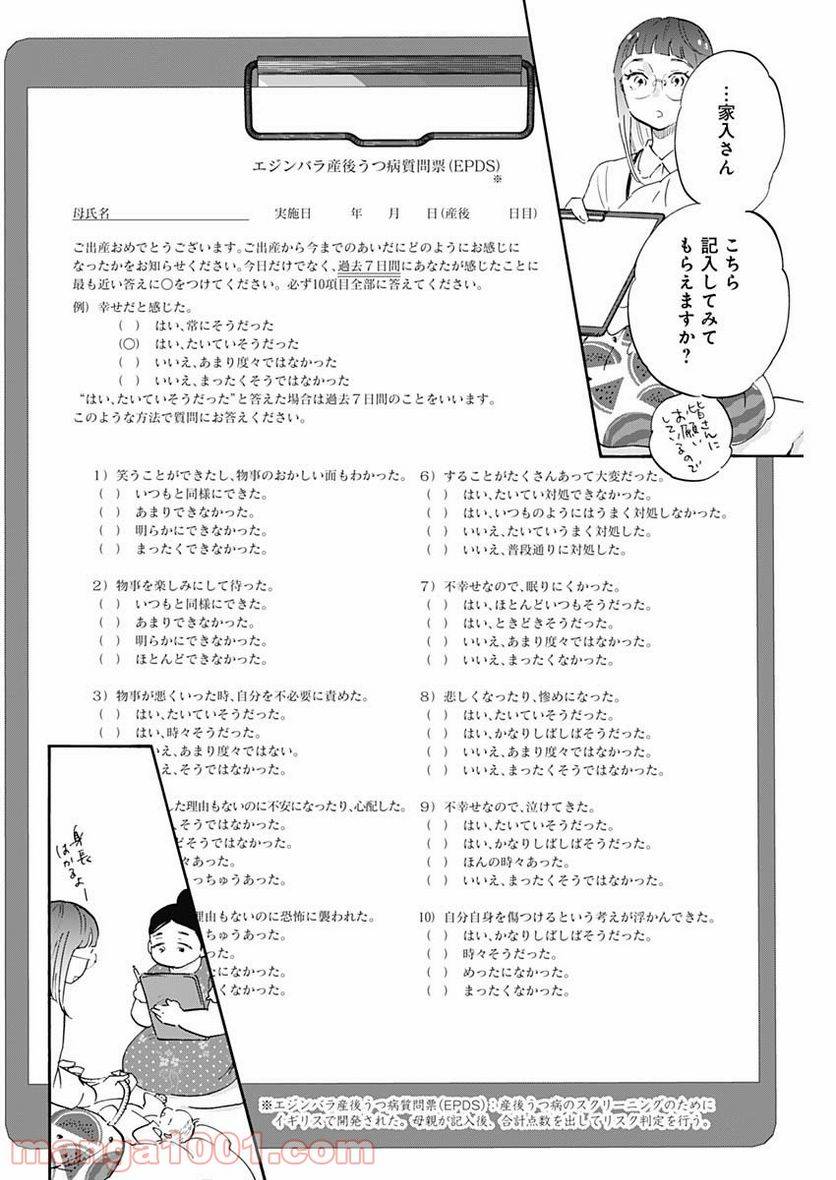 …家入さん
こちら
記入してみて
もらえますか?
皆さんに
お願い
しているので
エジンバラ産後うつ病質問票(EPDS)
※
母氏名 実施日 年 月 日(産後 日目)
ご出産おめでとうございます。ご出産から今までのあいだにどのようにお感じに
なったかをお知らせください。今日だけでなく、過去7日間にあなたが感じたことに
最も近い答えに○をつけてください。必ず10項目全部に答えてください。
例) 幸せだと感じた。
( ) はい、常にそうだった
(○) はい、たいていそうだった
( ) いいえ、あまり度々ではなかった
( ) いいえ、まったくそうではなかった
“はい、たいていそうだった”と答えた場合は過去7日間のことをいいます。
このような方法で質問にお答えください。
1) 笑うことができたし、物事のおかしい面もわかった。
( ) いつもと同様にできた。
( ) あまりできなかった。
( ) 明らかにできなかった。
( ) まったくできなかった。
2) 物事を楽しみにして待った。
( ) いつもと同様にできた。
( ) あまりできなかった。
( ) 明らかにできなかった。
( ) ほとんどできなかった。
3) 物事が悪くいった時、自分を不必要に責めた。
( ) はい、たいていそうだった。
( ) はい、時々そうだった。
いえ、あまり度々ではない。
え、そうではなかった。
した理由もないのに不安になったり、心配した。
、そうではなかった。
どそうではなかった。
々あった。
っちゅうあった。
理由もないのに恐怖に襲われた。
ちゅうあった。
った。
たになかった。
くなかった。
6) することがたくさんあって大変だった。
( ) はい、たいてい対処できなかった。
( ) はい、いつものようにはうまく対処しなかった。
( ) いいえ、たいていうまく対処した。
( ) いいえ、普段通りに対処した。
7) 不幸せなので、眠りにくかった。
( ) はい、ほとんどいつもそうだった。
( ) はい、ときどきそうだった。
( ) いいえ、あまり度々ではなかった。
( ) いいえ、まったくなかった。
8) 悲しくなったり、惨めになった。
( ) はい、たいていそうだった。
( ) はい、かなりしばしばそうだった。
( ) いいえ、あまり度々ではなかった。
( ) いいえ、まったくそうではなかった。
9) 不幸せなので、泣けてきた。
( ) はい、たいていそうだった。
( ) はい、かなりしばしばそうだった。
( ) ほんの時々あった。
( ) いいえ、まったくそうではなかった。
10) 自分自身を傷つけるという考えが浮かんできた。
( ) はい、かなりしばしばそうだった。
( ) 時々そうだった。
( ) めったになかった。
( ) まったくなかった。
身長
はかるよー
※エジンバラ産後うつ病質問票(EPDS):産後うつ病のスクリーニングのために
イギリスで開発された。母親が記入後、合計点数を出してリスク判定を行う。
manga1001.com